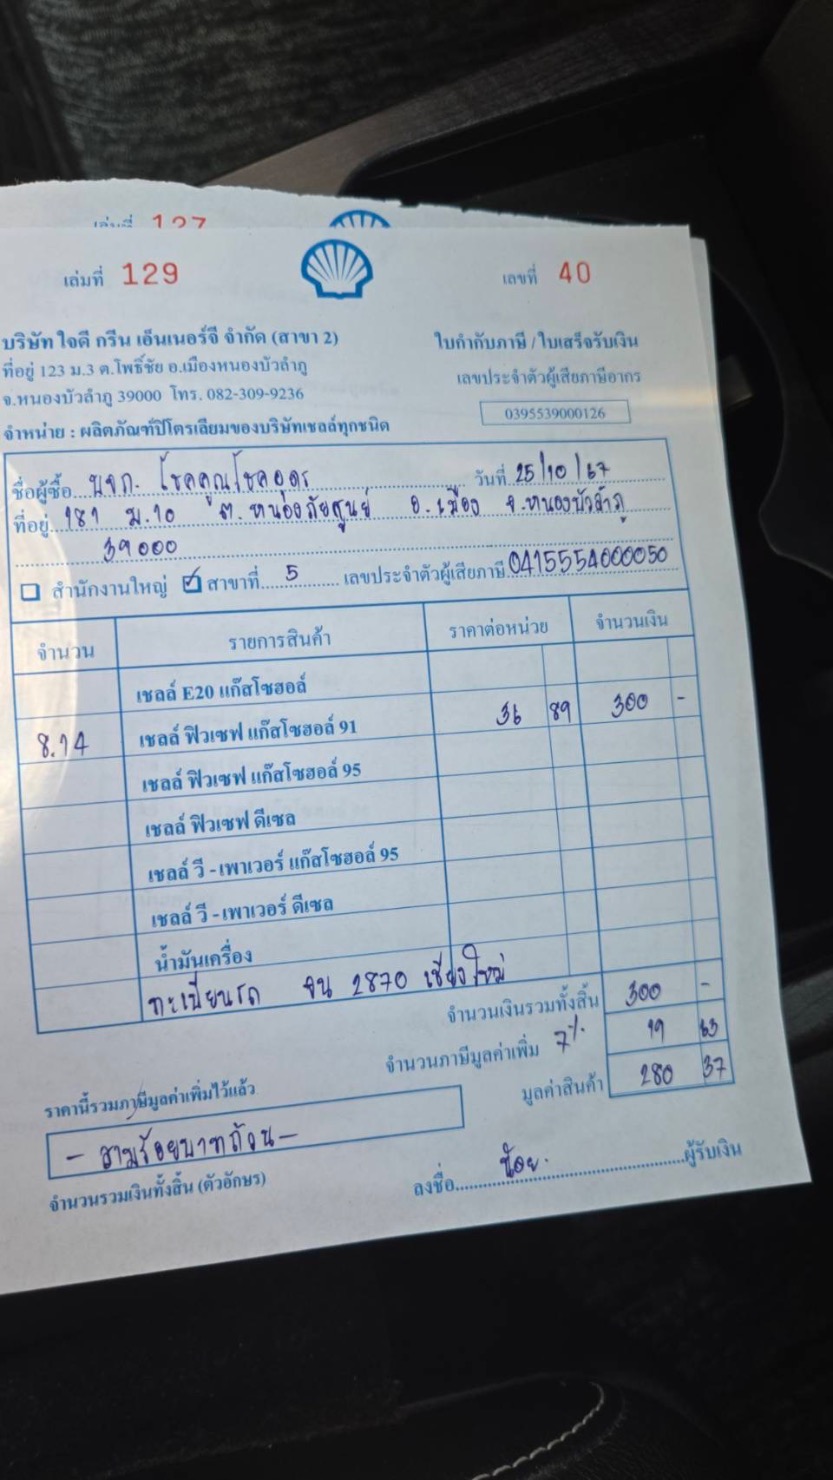 เล่มที่ 127
เล่มที่ 129
เลขที่ 40
บริษัท ใจดี กรีน เอ็นเนอร์จี จำกัด (สาขา 2)
ใบกำกับภาษี / ใบเสร็จรับเงิน
ที่อยู่ 123 ม.3 ต.โพธิ์ชัย อ.เมืองหนองบัวลำภู
เลขประจำตัวผู้เสียภาษีอากร
จ.หนองบัวลำภู 39000 โทร. 082-309-9236
0395539000126
จำหน่าย : ผลิตภัณฑ์ปิโตรเลียมของบริษัทเชลล์ทุกชนิด
ชื่อผู้ซื้อ หจก. โชคคูณโชคอุดร วันที่ 25/10/67
ที่อยู่ 181 ม.10 ต.หนองภัยศูนย์ อ.เมือง จ.หนองบัวลำภู
39000
สำนักงานใหญ่ ☑ สาขาที่ 5 เลขประจำตัวผู้เสียภาษี 0415554000050
จำนวน รายการสินค้า ราคาต่อหน่วย จำนวนเงิน
เชลล์ E20 แก๊สโซฮอล์
8.14 เชลล์ ฟิวเซฟ แก๊สโซฮอล์ 91 36 89 300 -
เชลล์ ฟิวเซฟ แก๊สโซฮอล์ 95
เชลล์ ฟิวเซฟ ดีเซล
เชลล์ วี - เพาเวอร์ แก๊สโซฮอล์ 95
เชลล์ วี - เพาเวอร์ ดีเซล
น้ำมันเครื่อง
ทะเบียนรถ ขน 2870 เชียงใหม่
จำนวนเงินรวมทั้งสิ้น 300 -
จำนวนภาษีมูลค่าเพิ่ม 7% 19 63
มูลค่าสินค้า 280 37
ราคานี้รวมภาษีมูลค่าเพิ่มไว้แล้ว
- สามร้อยบาทถ้วน -
จำนวนรวมเงินทั้งสิ้น (ตัวอักษร)
ลงชื่อ น้อย. ผู้รับเงิน